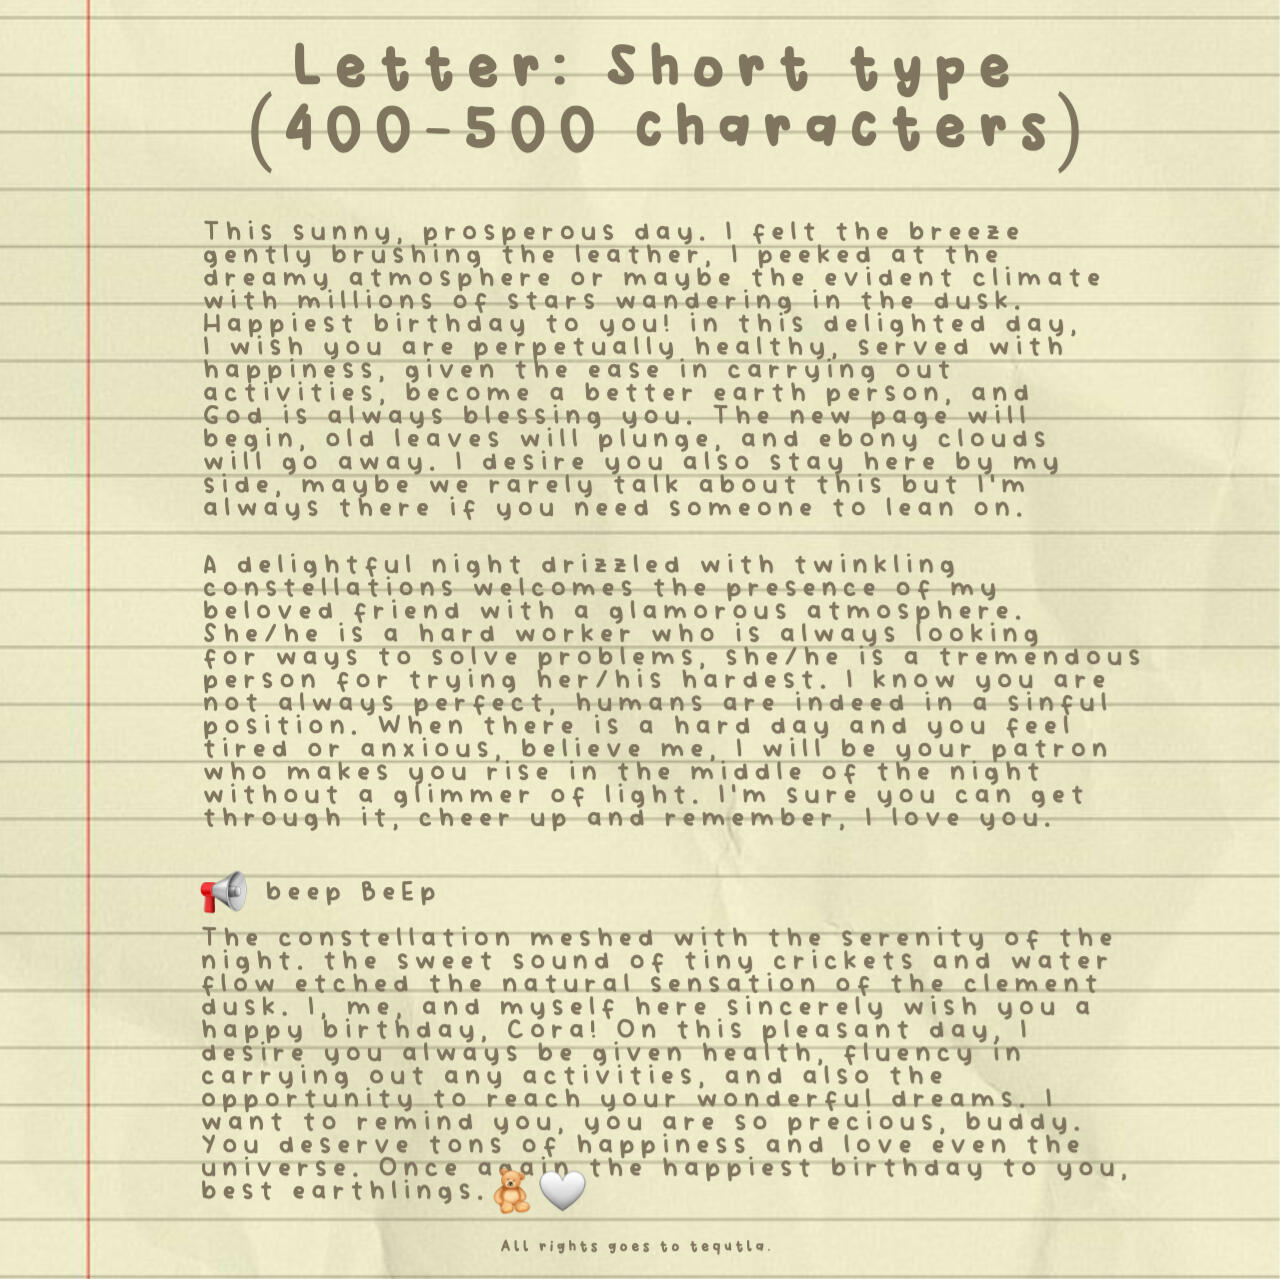 Letter: Short type
(400-500 characters)
This sunny, prosperous day. I felt the breeze
gently brushing the leather, I peeked at the
dreamy atmosphere or maybe the evident climate
with millions of stars wandering in the dusk.
Happiest birthday to you! in this delighted day,
I wish you are perpetually healthy, served with
happiness, given the ease in carrying out
activities, become a better earth person, and
God is always blessing you. The new page will
begin, old leaves will plunge, and ebony clouds
will go away. I desire you also stay here by my
side, maybe we rarely talk about this but I'm
always there if you need someone to lean on.
A delightful night drizzled with twinkling
constellations welcomes the presence of my
beloved friend with a glamorous atmosphere.
She/he is a hard worker who is always looking
for ways to solve problems, she/he is a tremendous
person for trying her/his hardest. I know you are
not always perfect, humans are indeed in a sinful
position. When there is a hard day and you feel
tired or anxious, believe me, I will be your patron
who makes you rise in the middle of the night
without a glimmer of light. I'm sure you can get
through it, cheer up and remember, I love you.
📢 beep BeEp
The constellation meshed with the serenity of the
night. the sweet sound of tiny crickets and water
flow etched the natural sensation of the clement
dusk. I, me, and myself here sincerely wish you a
happy birthday, Cora! On this pleasant day, I
desire you always be given health, fluency in
carrying out any activities, and also the
opportunity to reach your wonderful dreams. I
want to remind you, you are so precious, buddy.
You deserve tons of happiness and love even the
universe. Once again the happiest birthday to you,
best earthlings.🧸🤍
All rights goes to tequtla.